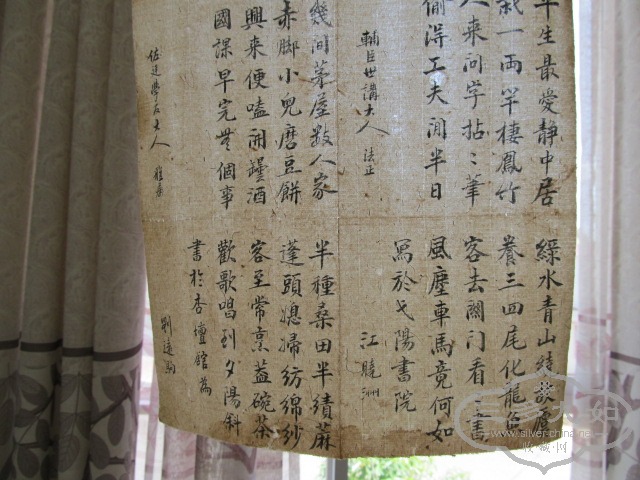 生最愛靜中居 綠水青山
栽一兩竿棲鳳竹 養三四尾化龍魚
人来问字拈〻筆 客去關门看〻書
偷得工夫閒半日 風塵車馬竟何如
輔臣世講大人 法正 寫於弋陽書院
江曉洲
幾间茅屋数人家 半種桑田半績蔴
赤脚小兒磨豆餅 蓬頭媳婦紡綿紗
興来便嗑開罎酒 客至常烹盖碗茶
國課早完無個事 歡歌唱到夕陽斜
書於杏壇舘為
佐廷學友大人
www.silver-china.net
收·藏·网